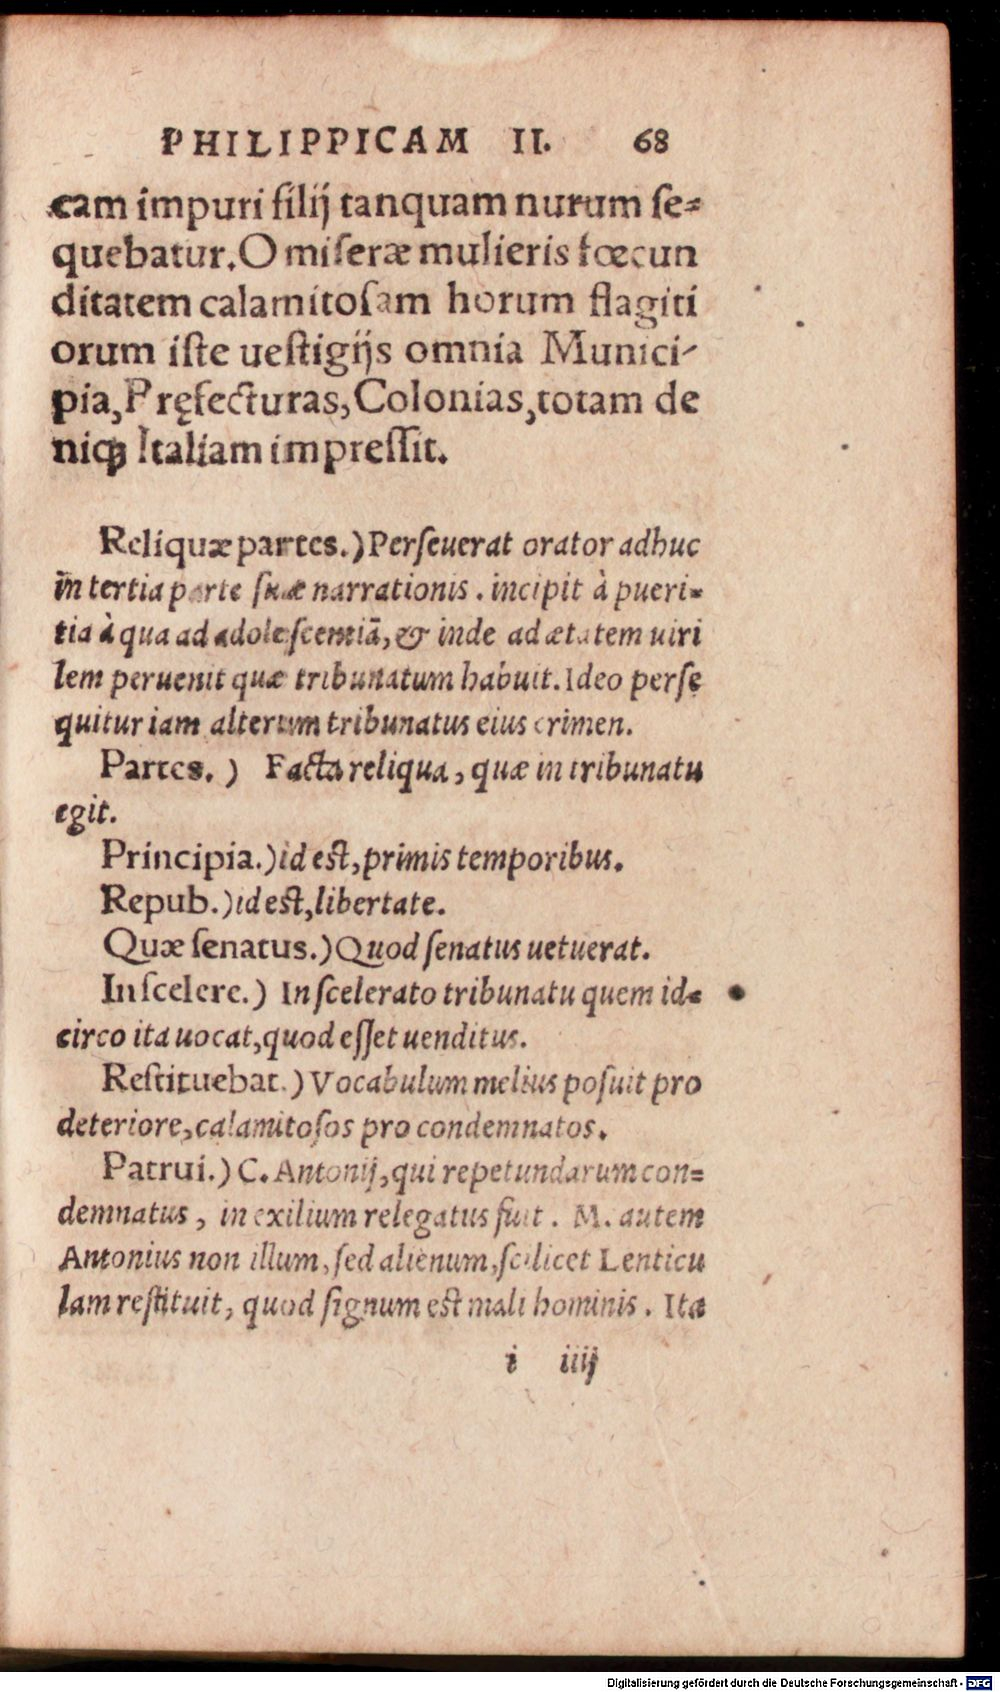 PHILIPPICAM II. 68
cam impuri filij tanquam nurum se=
quebatur. O miseræ mulieris fœcun
ditatem calamitosam horum flagiti
orum iste uestigijs omnia Munici-
pia, Pręfecturas, Colonias, totam de
niqꝫ Italiam impressit.
Reliquæ partes.) Perseuerat orator adhuc
in tertia parte suæ narrationis. incipit à pueri=
tia à qua ad adolescentiā, & inde ad ætatem uiri
lem peruenit quæ tribunatum habuit. Ideo perse
quitur iam alterum tribunatus eius crimen.
Partes.) Facta reliqua, quæ in tribunatu
egit.
Principia.) id est, primis temporibus.
Repub.) id est, libertate.
Quæ senatus.) Quod senatus uetuerat.
In scelere.) In scelerato tribunatu quem id=
circo ita uocat, quod esset uenditus.
Restituebat.) Vocabulum melius posuit pro
deteriore, calamitosos pro condemnatos.
Patrui.) C. Antonij, qui repetundarum con=
demnatus, in exilium relegatus fuit. M. autem
Antonius non illum, sed alienum, scilicet Lenticu
lam restituit, quod signum est mali hominis. Ita
i iiij
Digitalisierung gefördert durch die Deutsche Forschungsgemeinschaft - DFG